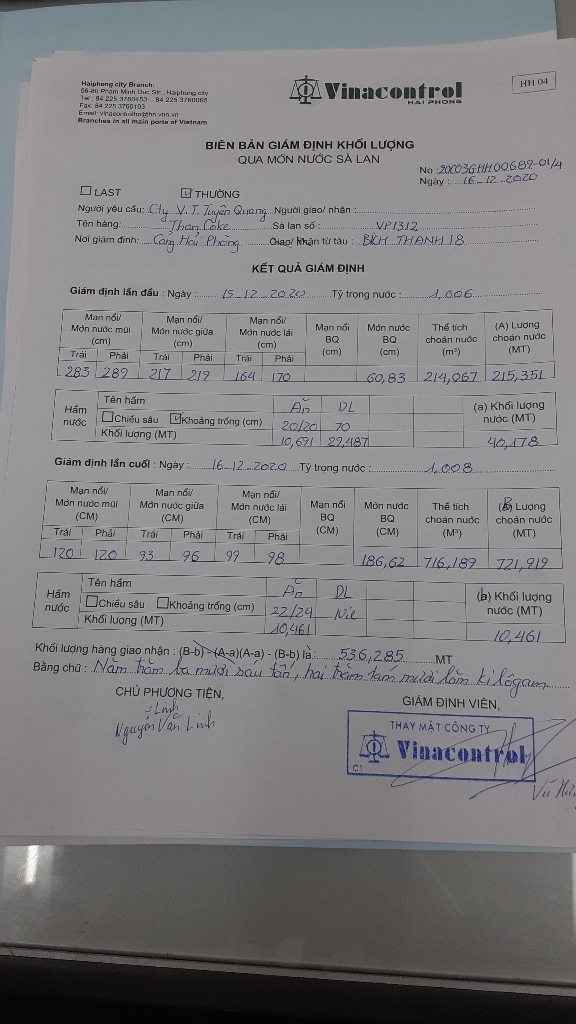 Haiphong city Branch:
56-80 Pham Minh Duc Str., Haiphong city
Tel: 84 225 3760453 - 84 225 3760065
Fax: 84 225 3760103
Email: vinacontrolhp@hn.vnn.vn
Branches in all main ports of Vietnam
Vinacontrol
HAI PHONG
HH 04
BIÊN BẢN GIÁM ĐỊNH KHỐI LƯỢNG
QUA MÓN NƯỚC SÀ LAN
No : 20C03GHH00689-01/4
Ngày : 16-12-2020
LAST THƯỜNG
Người yêu cầu: Cty V.T. Tuyên Quang Người giao/ nhận :
Tên hàng: Than Coke Sà lan số : VP1312
Nơi giám định: Cảng Hải Phòng Giao/ Nhận từ tàu : BÍCH THANH 18
KẾT QUẢ GIÁM ĐỊNH
Giám định lần đầu : Ngày : 15-12-2020 Tỷ trọng nước : 1,006
Mạn nổi/ Món nước mũi (cm) Mạn nổi/ Món nước giữa (cm) Mạn nổi/ Món nước lái (cm) Mạn nổi BQ (cm) Món nước BQ (cm) Thể tích choán nước (m³) (A) Lượng choán nước (MT)
Trái Phải Trái Phải Trái Phải
283 289 217 219 164 170 60,83 214,067 215,351
Hầm nước Tên hầm DL (a) Khối lượng nước (MT)
Chiều sâu Khoảng trống (cm) 20/20 70
Khối lượng (MT) 10,691 29,487 40,178
Giám định lần cuối : Ngày : 16-12-2020 Tỷ trọng nước : 1,008
Mạn nổi/ Món nước mũi (CM) Mạn nổi/ Món nước giữa (CM) Mạn nổi/ Món nước lái (CM) Mạn nổi BQ (CM) Món nước BQ (CM) Thể tích choán nước (M³) (B) Lượng choán nước (MT)
Trái Phải Trái Phải Trái Phải
120 120 93 96 99 98 186,62 716,189 721,919
Hầm nước Tên hầm DL (b) Khối lượng nước (MT)
Chiều sâu Khoảng trống (cm) 22/24 Nil
Khối lượng (MT) 10,461 10,461
Khối lượng hàng giao nhận : (B-b) - (A-a)(A-a) - (B-b) là: 536,285 MT
Bằng chữ : Năm trăm ba mươi sáu tấn, hai trăm tám mươi lăm kilôgam
CHỦ PHƯƠNG TIỆN,
Linh
Nguyễn Văn Linh
GIÁM ĐỊNH VIÊN,
THAY MẶT CÔNG TY
Vinacontrol
C1
Vũ